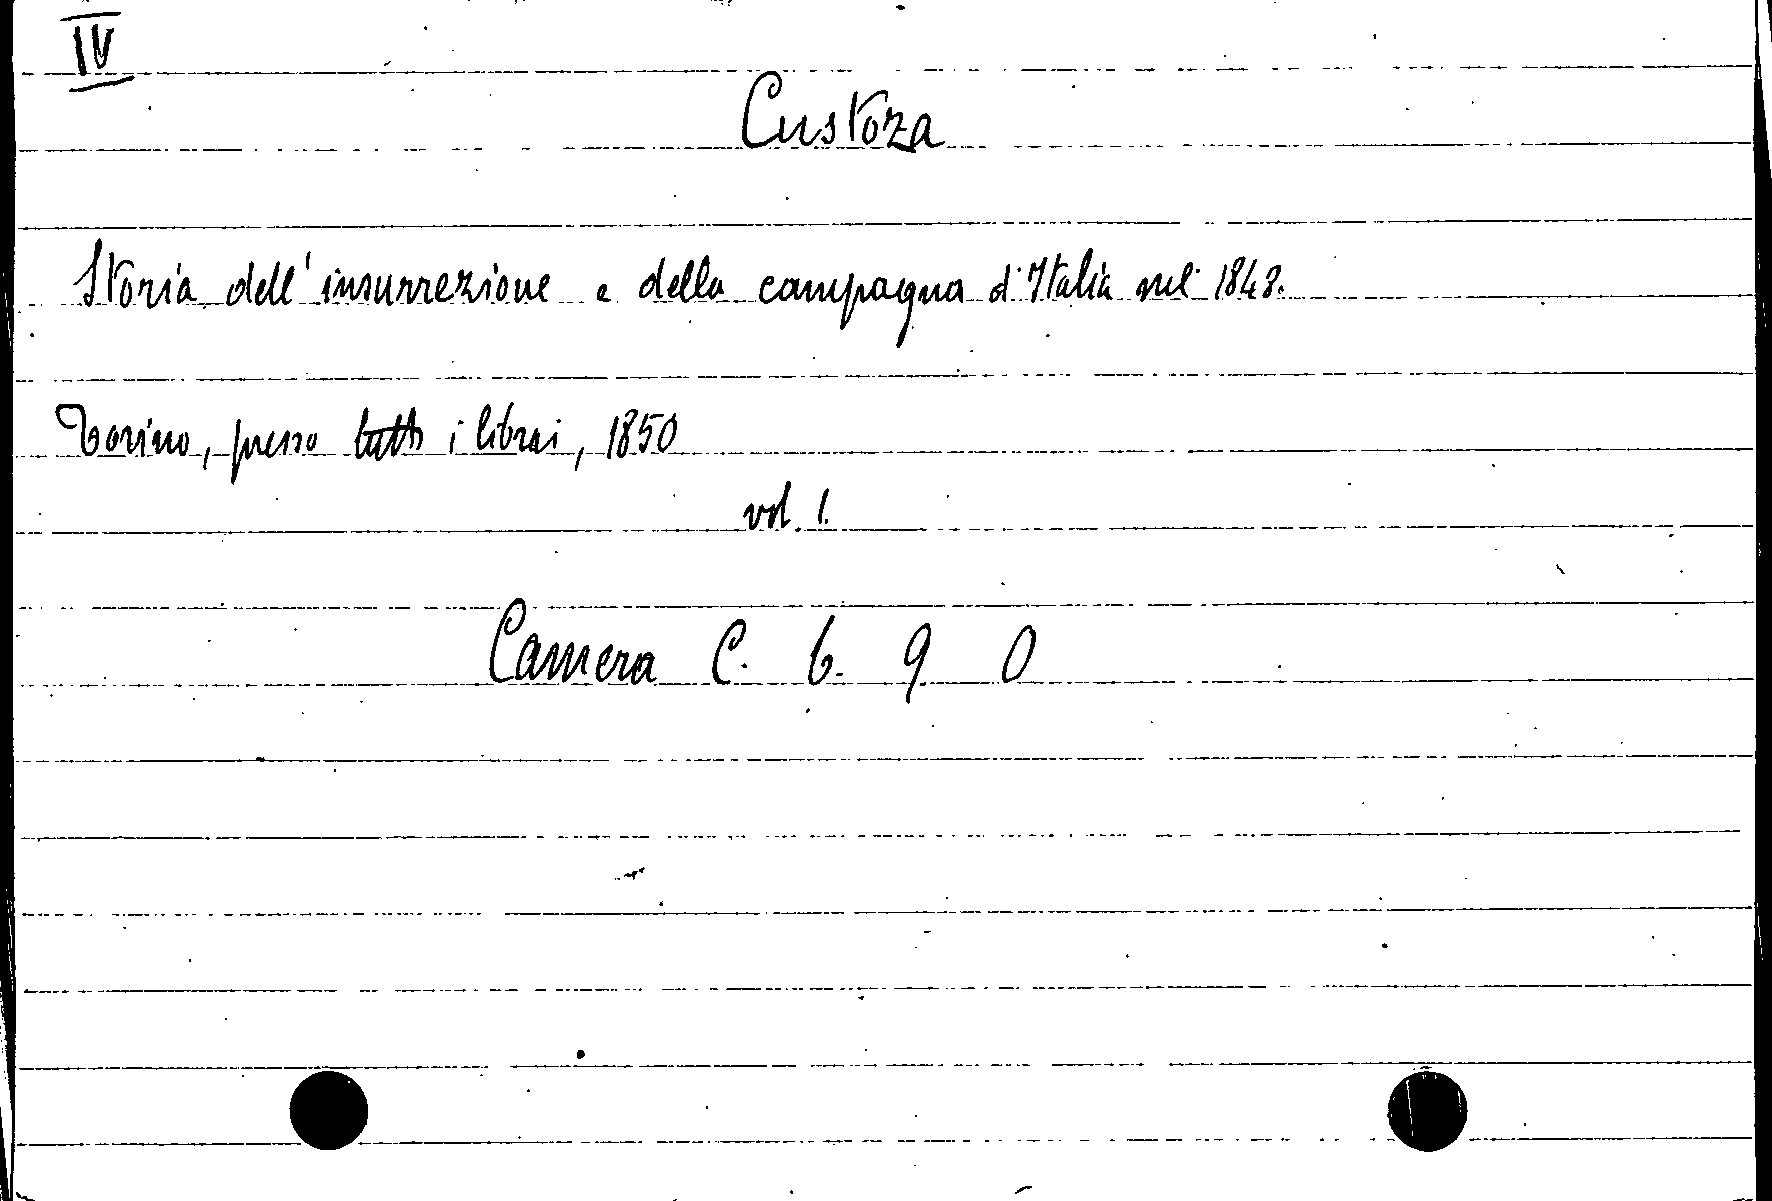 IV
Custoza
Storia dell'insurrezione e della campagna d'Italia nel 1848.
Torino, presso tutti i librai, 1850
vol. 1.
Camera C. 6. 9 0